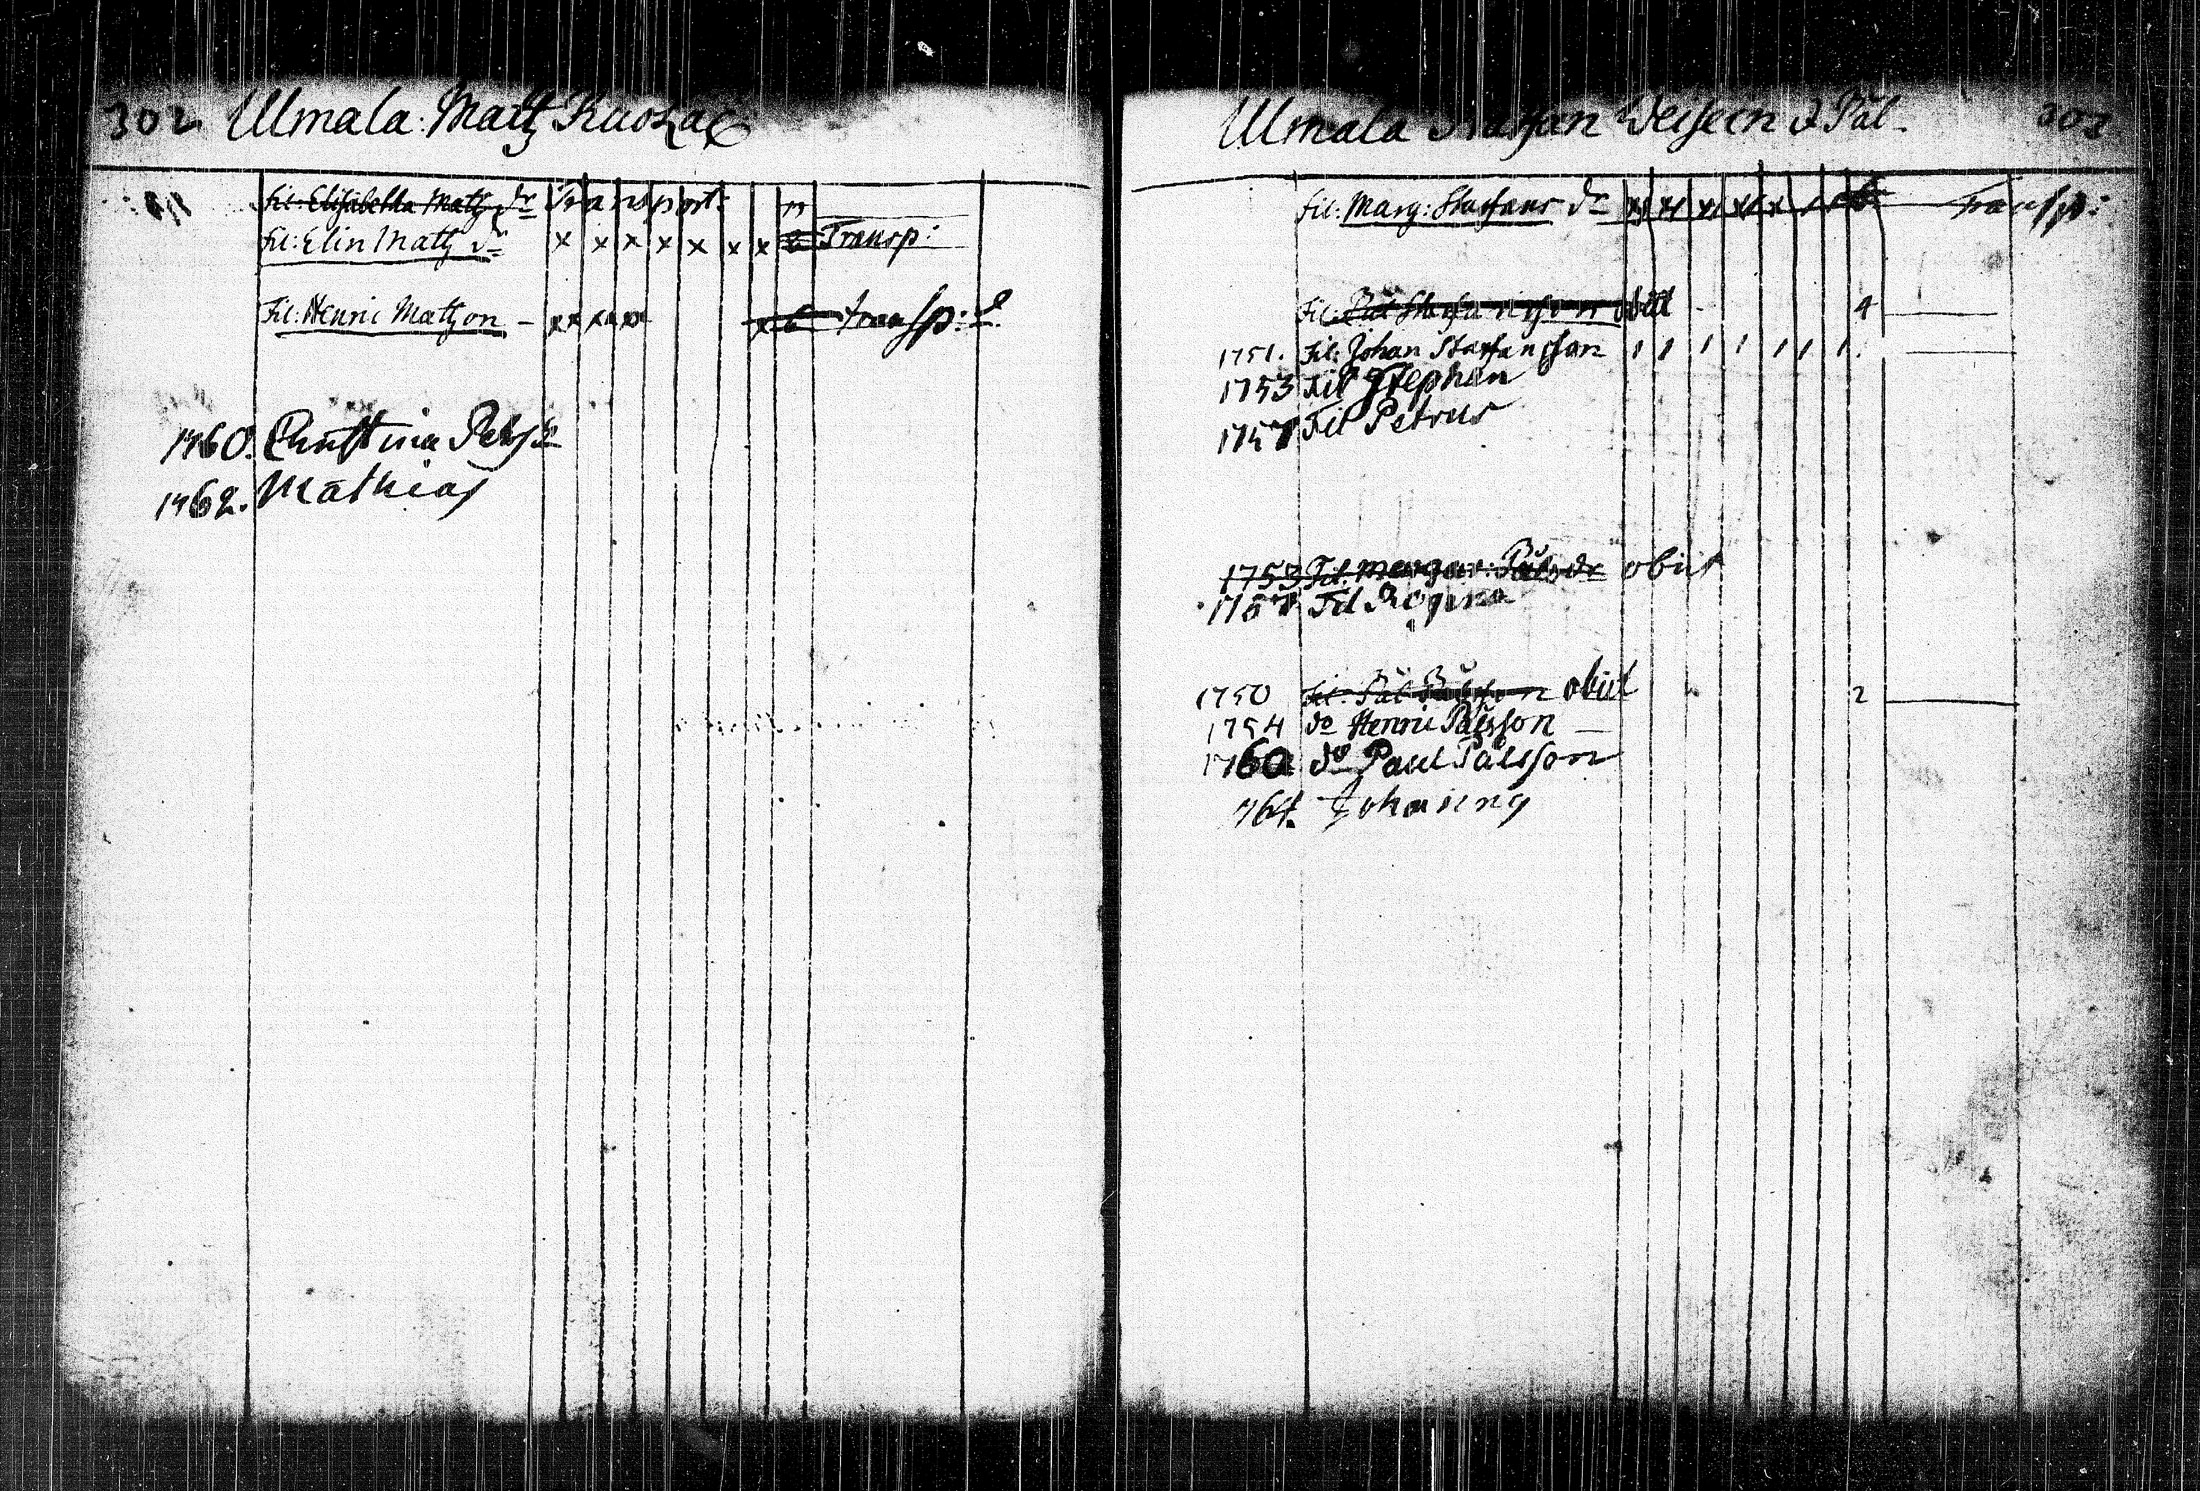 302 Ulmala. Matz
Fil: Elisabetha Matz dr Transport:
Fil: Elin Matz dr x x x x x x x Transp:
Fil: Henric Matzon - xx xx xx x transp:
1760. Christina
1762. Mathias
Ulmala Staffan & Pål. 303
Fil: Marg: Staffans dr Transp:
Fil: Pål Staffansson obiit 4
1751. Fil: Johan Staffansson 1 1 1 1 1 1 1
1753 Fil Stephan
1757 Fil Petrus
1753 Fil. Margar: Påls dr obiit
1757 Fil Regina
1750 Fil: Pål Pålsson obiit 2
1754 do Henric Pålsson
1760 do Paul Pålsson
764. Johannes